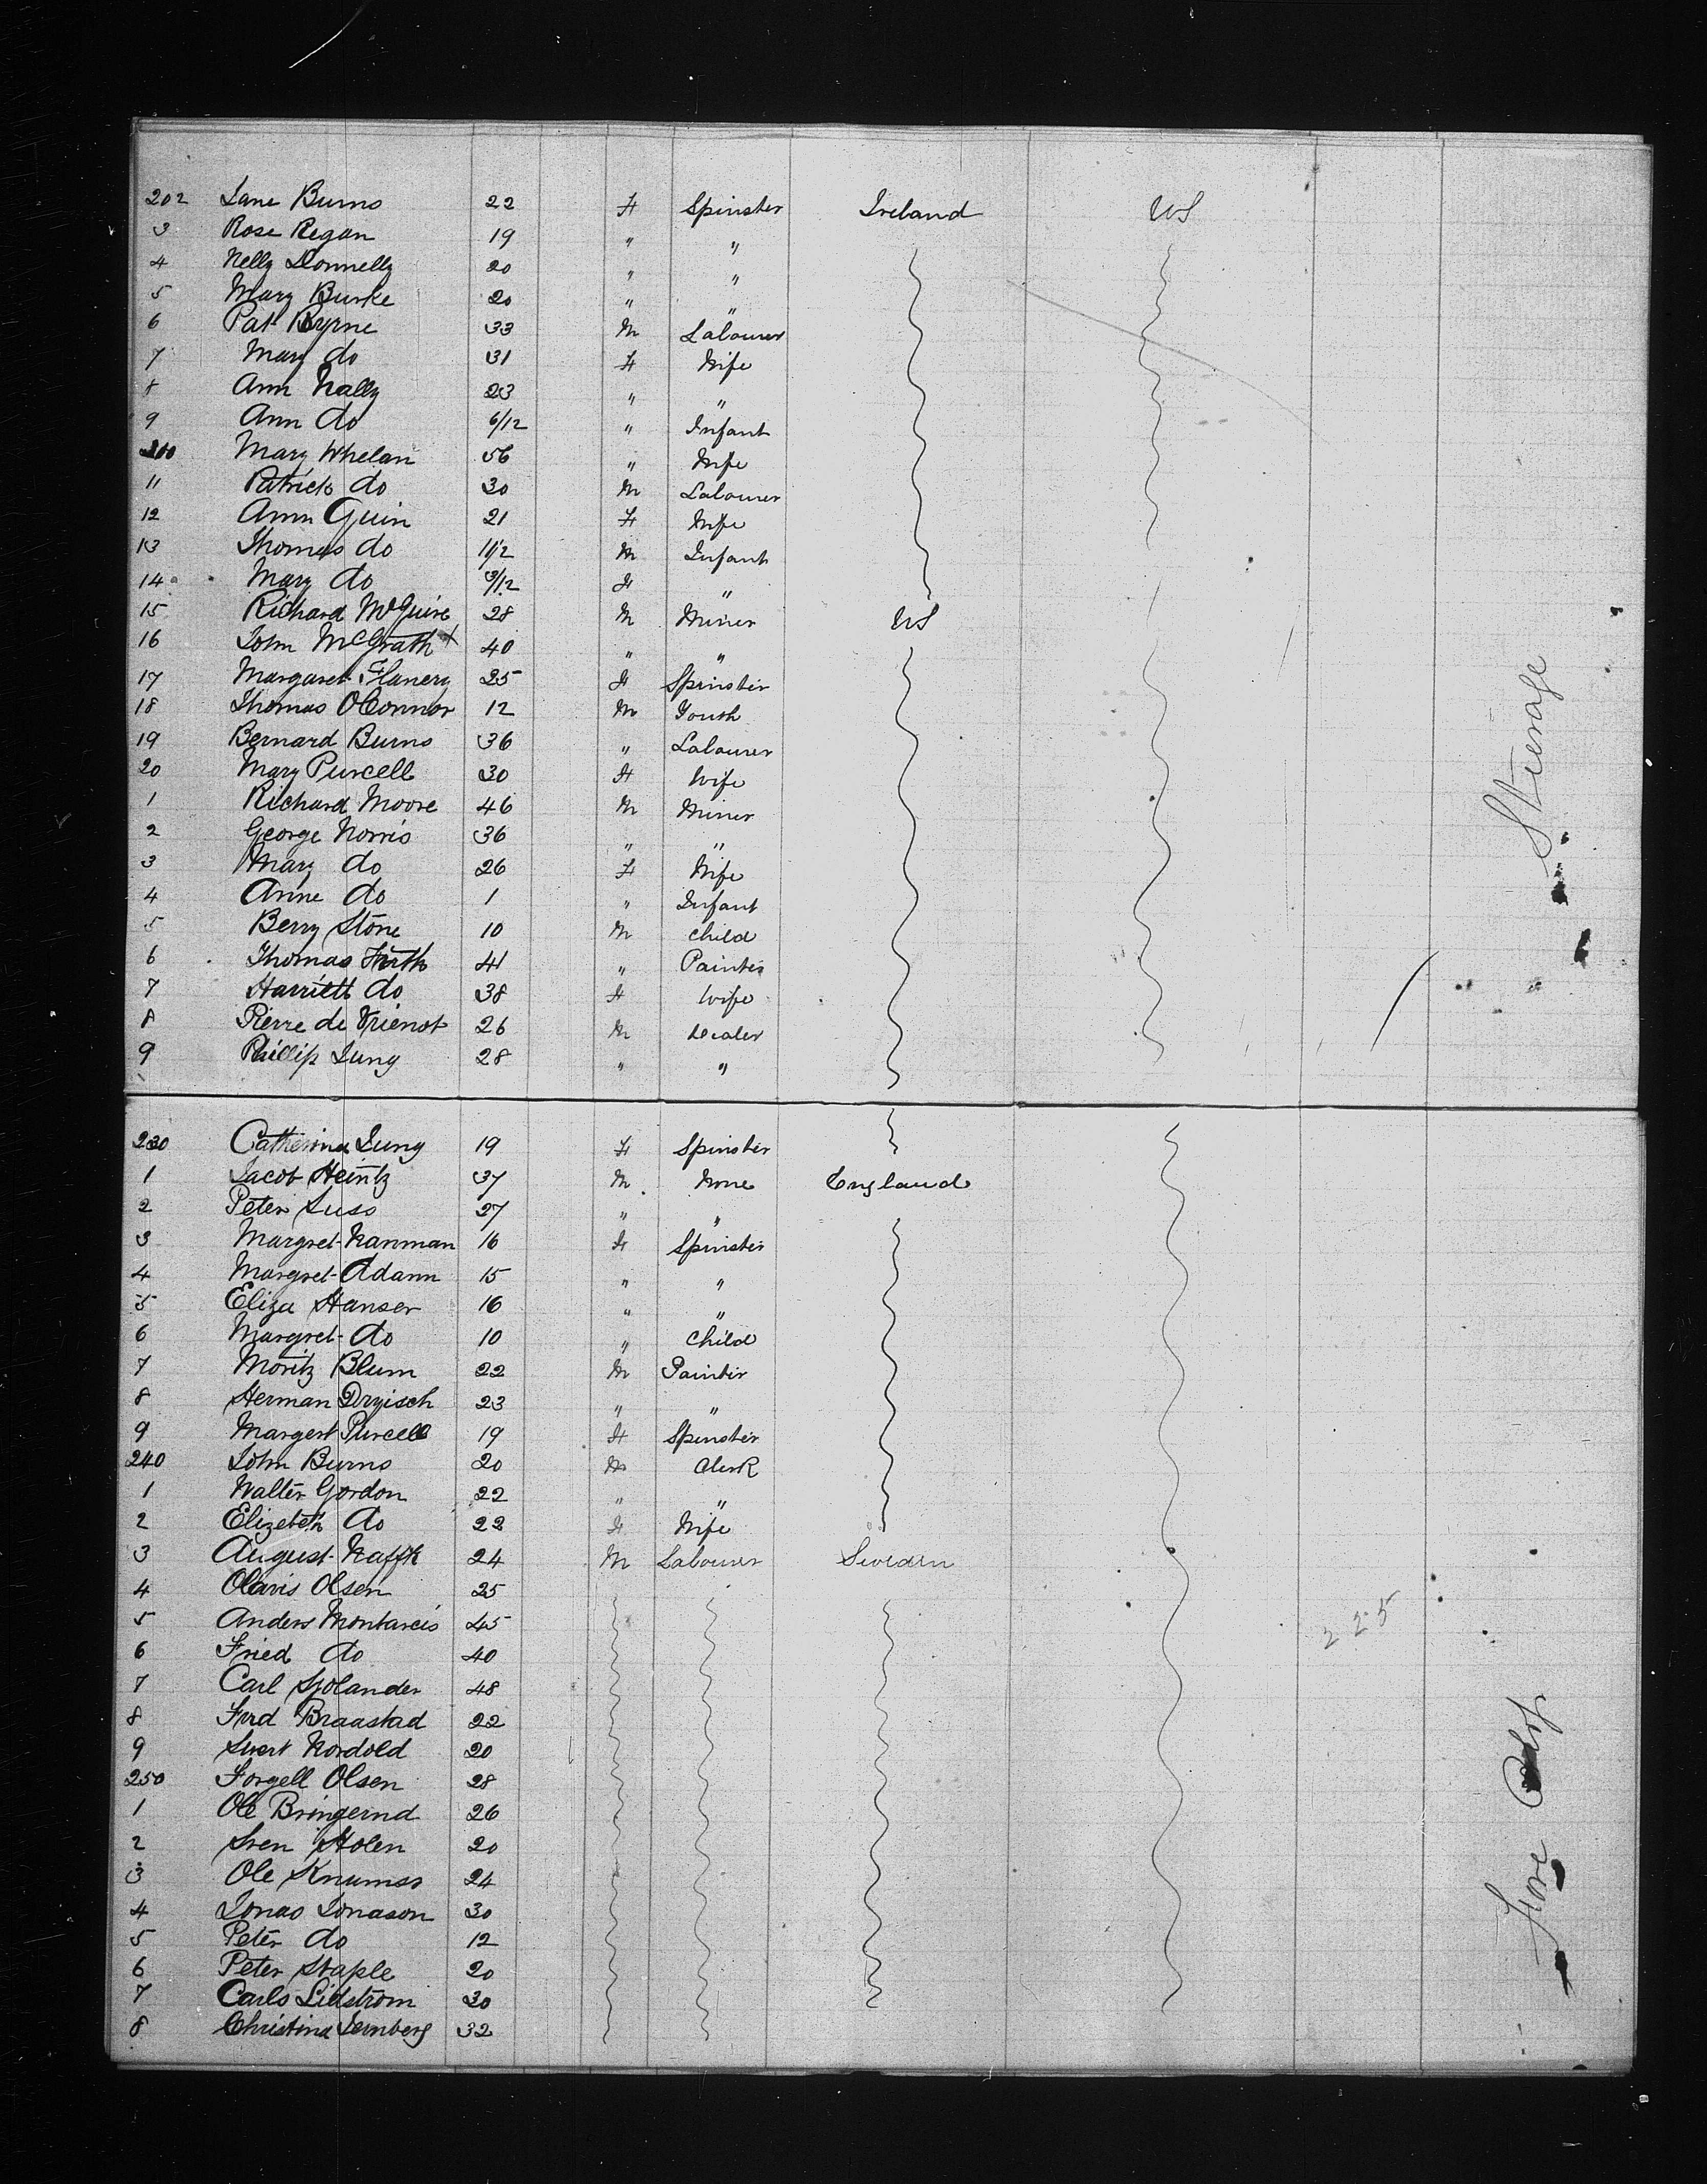 202 Jane Burns 22 F Spinster Ireland US
3 Rose Regan 19 " "
4 Nelly Donnelly 20 " "
5 Mary Burke 20 " "
6 Pat Byrne 33 M Labourer
7 Mary do 31 F Wife
8 Ann Nally 23 " "
9 Ann do 6/12 " Infant
210 Mary Whelan 56 " Wife
11 Patrick do 30 M Labourer
12 Ann Guin 21 F Wife
13 Thomas do 11/2 M Infant
14 Mary do 3/12 F "
15 Richard McGuire 28 M Miner US
16 John McGrath x 40 " "
17 Margaret Flanery 25 F Spinster
18 Thomas OConnor 12 M Youth
19 Bernard Burns 36 " Labourer
20 Mary Purcell 30 F Wife
1 Richard Moore 46 M Miner
2 George Norris 36 " "
3 Mary do 26 F Wife
4 Anne do 1 " Infant
5 Berry Stone 10 M Child
6 Thomas Firth 41 " Painter
7 Harriett do 38 F Wife
8 Pierre de Vrienot 26 M Dealer
9 Phillip Jung 28 " "
230 Catherina Jung 19 F Spinster
1 Jacob Heintz 37 M None England
2 Peter Suss 27 " "
3 Margret Nanman 16 F Spinster
4 Margret Adamn 15 " "
5 Eliza Hanser 16 " "
6 Margret do 10 " Child
7 Moritz Blum 22 M Painter
8 Herman 23 " "
9 Margert Purcell 19 F Spinster
240 John Burns 20 M Clerk
1 Walter Gordon 22 " "
2 Elizebeth do 22 F Wife
3 August 24 M Labourer Sweden
4 Olavis Olsen 25
5 Anders Montarcis 45
6 Fried do 40
7 Carl Sjolander 48
8 Ford Braastad 22
9 Sivert Nordold 20
250 Torgell Olsen 28
1 Ole Bringernd 26
2 Sven Holen 20
3 Ole 24
4 Jonas Jonason 30
5 Peter do 12
6 Peter Staple 20
7 Carls Lidstrom 30
8 Christina Lernberg 32
Steerage
225